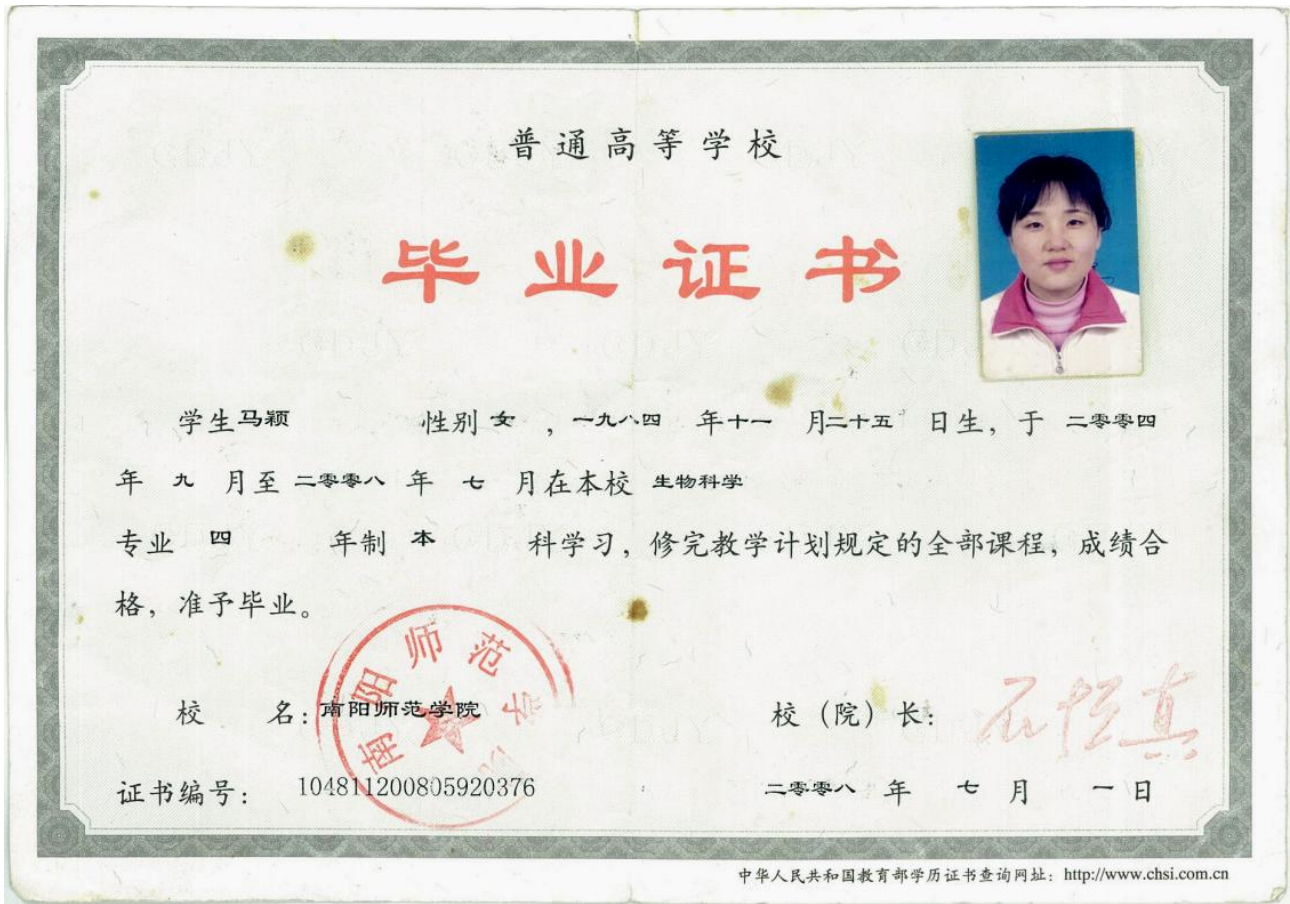 普通高等学校
毕业证书
学生马颖 性别女，一九八四 年十一 月二十五 日生，于 二零零四
年 九 月至 二零零八 年 七 月在本校 生物科学
专业 四 年制 本 科学习，修完教学计划规定的全部课程，成绩合
格，准予毕业。
南阳师范学院
校 名：南阳师范学院 校（院）长：
证书编号： 104811200805920376 二零零八 年 七 月 一 日
中华人民共和国教育部学历证书查询网址：http://www.chsi.com.cn